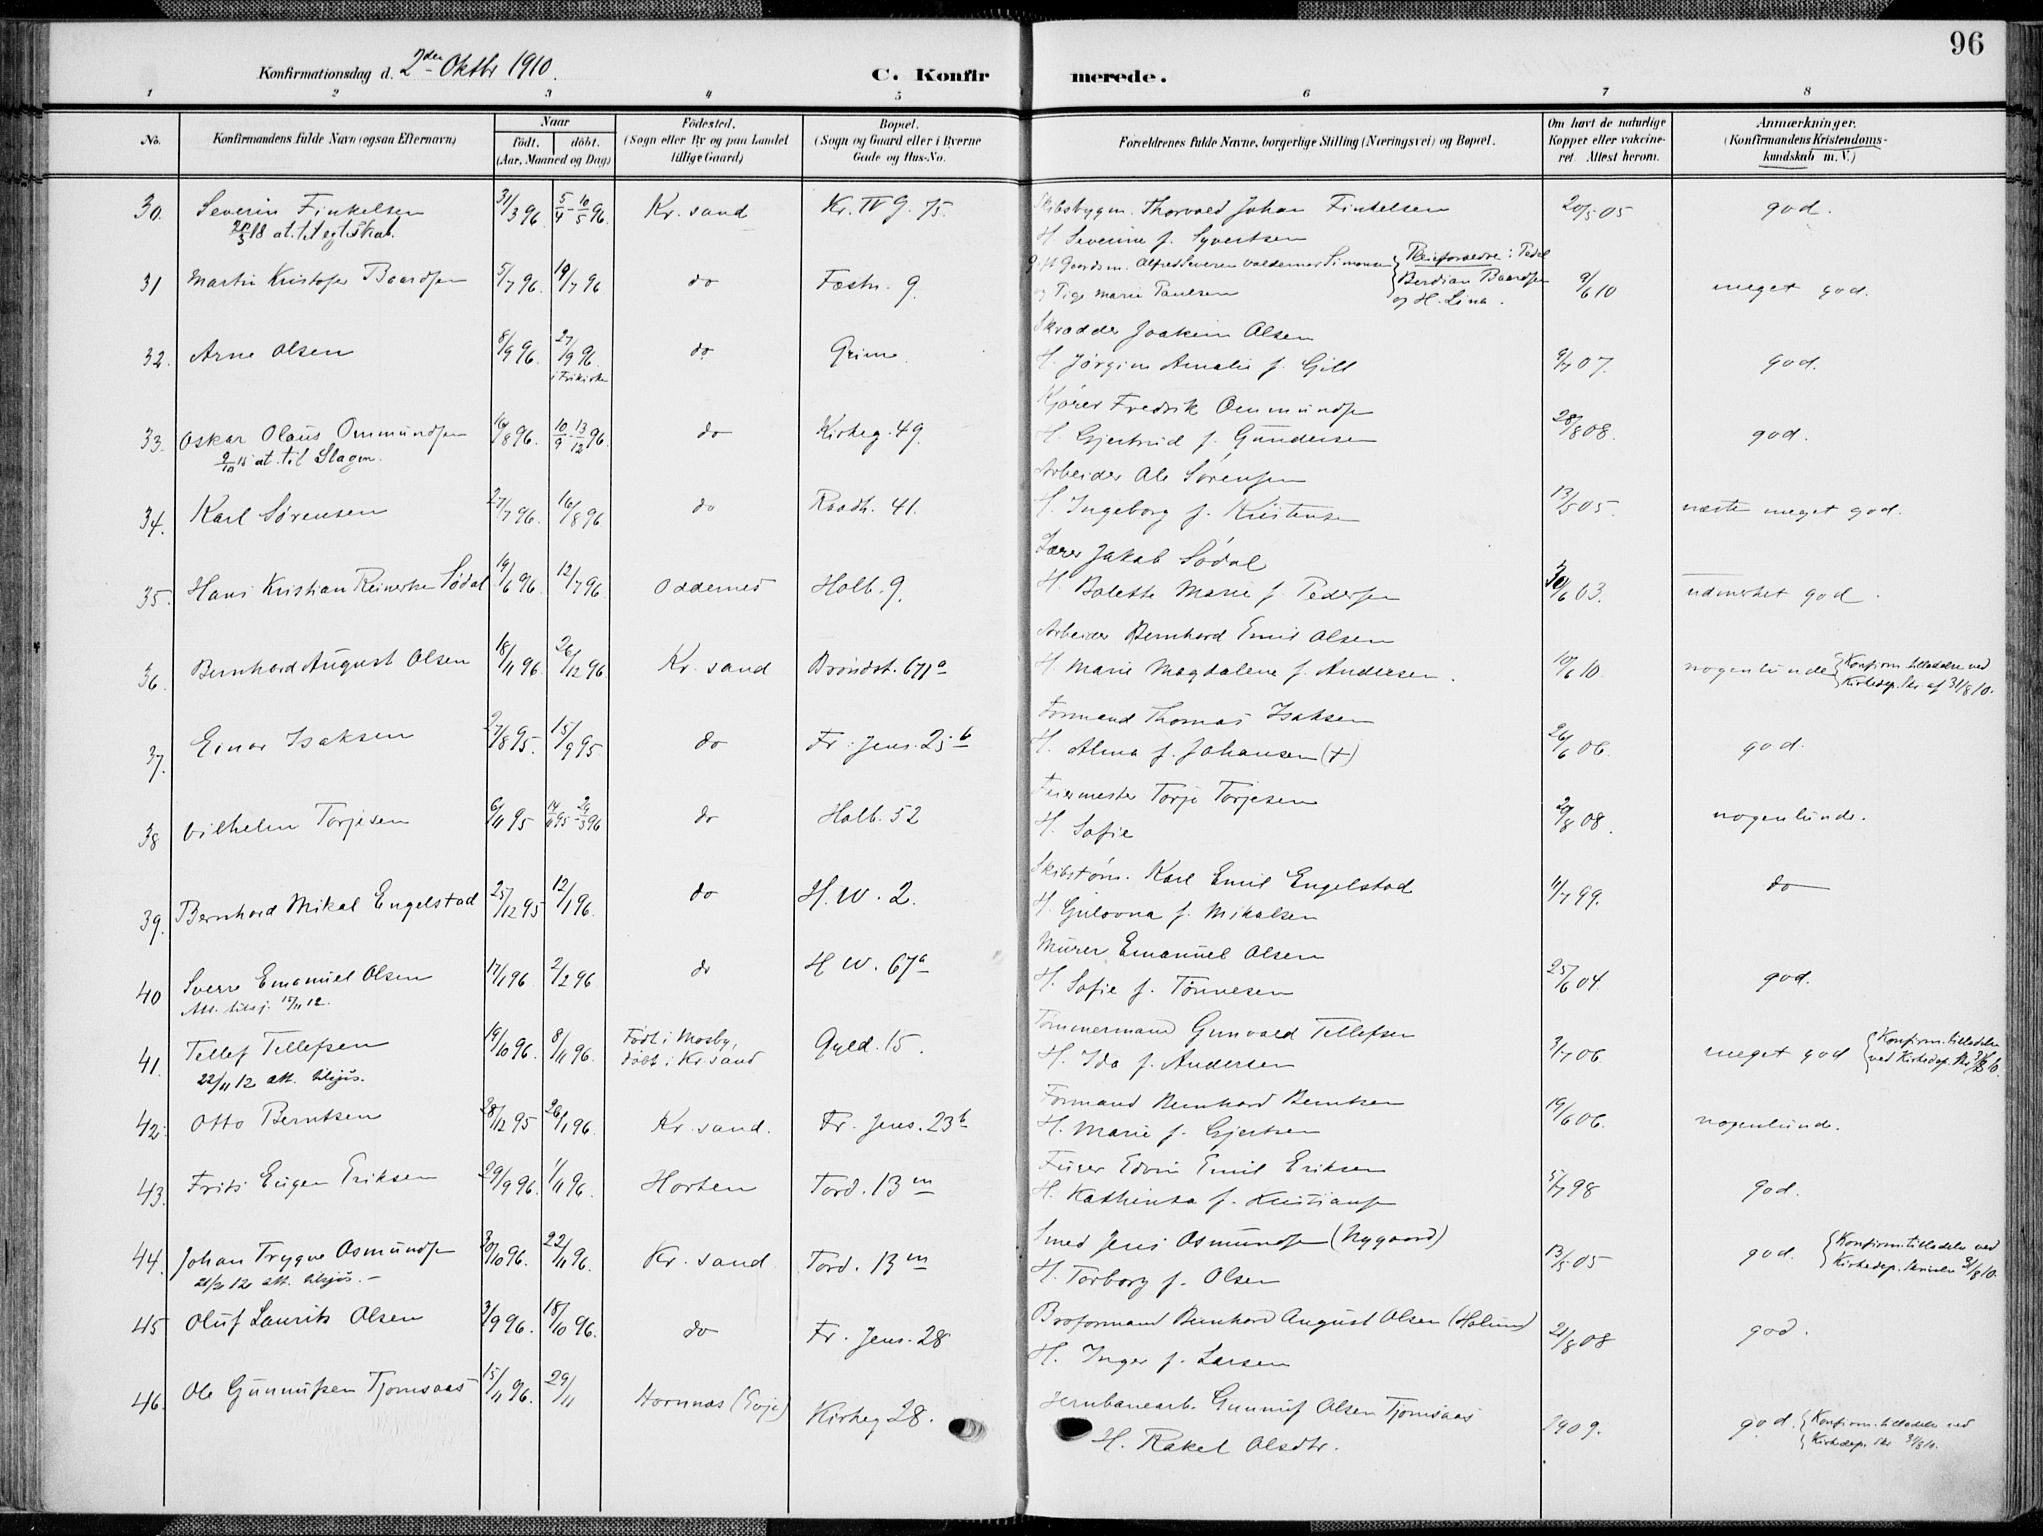 96
Konfirmationsdag d. 2den Oktbr 1910.
C. Konfirmerede.
1 2 3 4 5 6 7 8
No.
Konfirmandens fulde Navn (ogsaa Efternavn)
Naar
født. døbt.
(Aar, Maaned og Dag)
Fødested.
(Sogn eller By og paa Landet
tillige Gaard)
Bopæl.
(Sogn og Gaard eller i Byerne
Gade og Hus-No.
Forældrenes fulde Navne, borgerlige Stilling (Næringsvei) og Bopæl.
Om havt de naturlige
Kopper eller vakcine-
ret Attest herom.
Anmærkninger.
(Konfirmandens Kristendoms-
kundskab m. V.)
30. Severin Finkelsen 31/3 96 5/4 - 10/5 96. Kr. sand Kr. IV g. 75. Skibsbygm. Thorvald Johan Finkelsen 20/5 05 god.
at. til egteskab.
H. Severine f. Syvertsen
31 Martin Kristofer Baardsen 5/7 96. 19/7 96 do Festn. 9. Gaardsm. Alfred Severin Valdemar Simonsen { Pleieforældre: Pedel
og Marie Paulsen Berdian Baardsen 9/6 10 meget god.
og H. Lina.
Skrædder Joakim Olsen
32. Arne Olsen 8/9 96. 27/9 96 do Grim. H. Jørgine Amalie f. Gill 9/7 07. god.
i Frikirke
Kjører Fredrik Ommundsen
33. Oskar Olaus Ommundsen 16/8 96. 10/9 - 13/12 96. do Kirkeg. 49. H. Gjertrud f. Gundersen 28/8 08. god.
at. til Slagen.
Arbeider Ole Sørensen
34. Karl Sørensen 27/7 96. 16/8 96 do Raadh. 41. H. Ingeborg f. Kristensen 13/5 05. næsten meget god.
Lærer Jakob Sødal
35. Hans Kristian Reinertsen Sødal 19/6 96. 12/7 96. Oddernes Holb. 9. H. Bolette Marie f. Pedersen 30/6 03. udmerket god.
Arbeider Bernhard Emil Olsen
36. Bernhard August Olsen 18/11 96 26/12 96. Kr. sand Brøndst. 67 a H. Marie Magdalene f. Andersen. 10/6 10. nogenlunde { Konfirm. tilladelse ved
Kirkedep. Skr. af 31/8 10.
Formand Thomas Isaksen
37. Einar Isaksen 27/8 95. 15/9 95 do Fr. Jens. 25 b H. Alma f. Johansen (+) 26/6 06. god.
Feiermester Torje Torjesen
38 Vilhelm Torjesen 6/11 95 14/11 95 - 29/3 96 do Holb. 52 H. Sofie 20/8 08. nogenlunde.
Skibstøm. Karl Emil Engelstad
39. Bernhard Mikal Engelstad 25/12 95 12/1 96. do H. W. 2. H. Gulovna f. Mikalsen 11/7 99. do
Murer Emanuel Olsen
40 Sverre Emanuel Olsen 17/1 96. 2/2 96 do H W. 67 a H. Sofie f. Tønnesen 25/6 04. god.
Att. tilsj. 15/11 12.
Tømmermand Gunvald Tellefsen
41. Tellef Tellefsen 19/10 96. 8/11 96. Født i Mosby, døbt i Kr. sand Gyld. 15. H. Ida f. Andersen 3/7 06 meget god { Konfirm. tilladelse
ved Kirkedep. Skr. 31/8 10.
22/11 12 att. tilsjøs.
Formand Bernhard Berntsen
42. Otto Berntsen 28/12 95 26/1 96. Kr. sand. Fr. Jens. 23 b H. Marie f. Gjertsen 19/6 06. nogenlunde.
Fører Edvin Emil Eriksen
43. Frits Eugen Eriksen 29/9 96. 1/11 96. Horten Tord. 13 m H. Kathinka f. Kristiansen 5/7 98 god.
Smed Jens Osmundsen (Nygaard)
44. Johan Trygve Osmundsen 30/10 96. 22/11 96. Kr. sand Tord. 13 m H. Torborg f. Olsen 13/5 05 god. { Konfirm. tilladelse ved
Kirkedep. Skrivelse 31/8 10.
att. tilsjøs.
45 Oluf Laurits Olsen 3/9 96. 18/10 96. do Fr. Jens. 28 Broformand Bernhard August Olsen 21/8 08 god.
H. Inger f. Larsen
46. Ole Gunnufsen Tjomsaas 15/11 96. 29/11 Hornnæs (Evje) Kirkeg 28. Jernbanearb. Gunnuf Olsen Tjomsaas 1909. god. { Konfirm. tilladelse ved
Kirkedep. Skr 31/8 10.
H. Rakel Olsdtr.